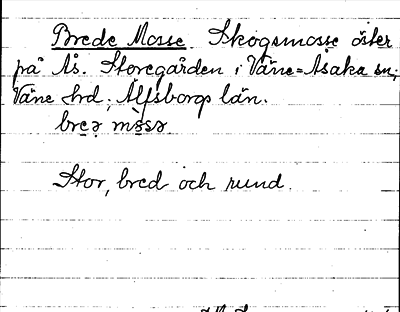 Brede Mosse. Skogsmosse öster
på Ås. Storegården i Väne=Åsaka sn;
Väne hrd; Älfsborgs län.
breə mòsə
Stor, bred och rund.